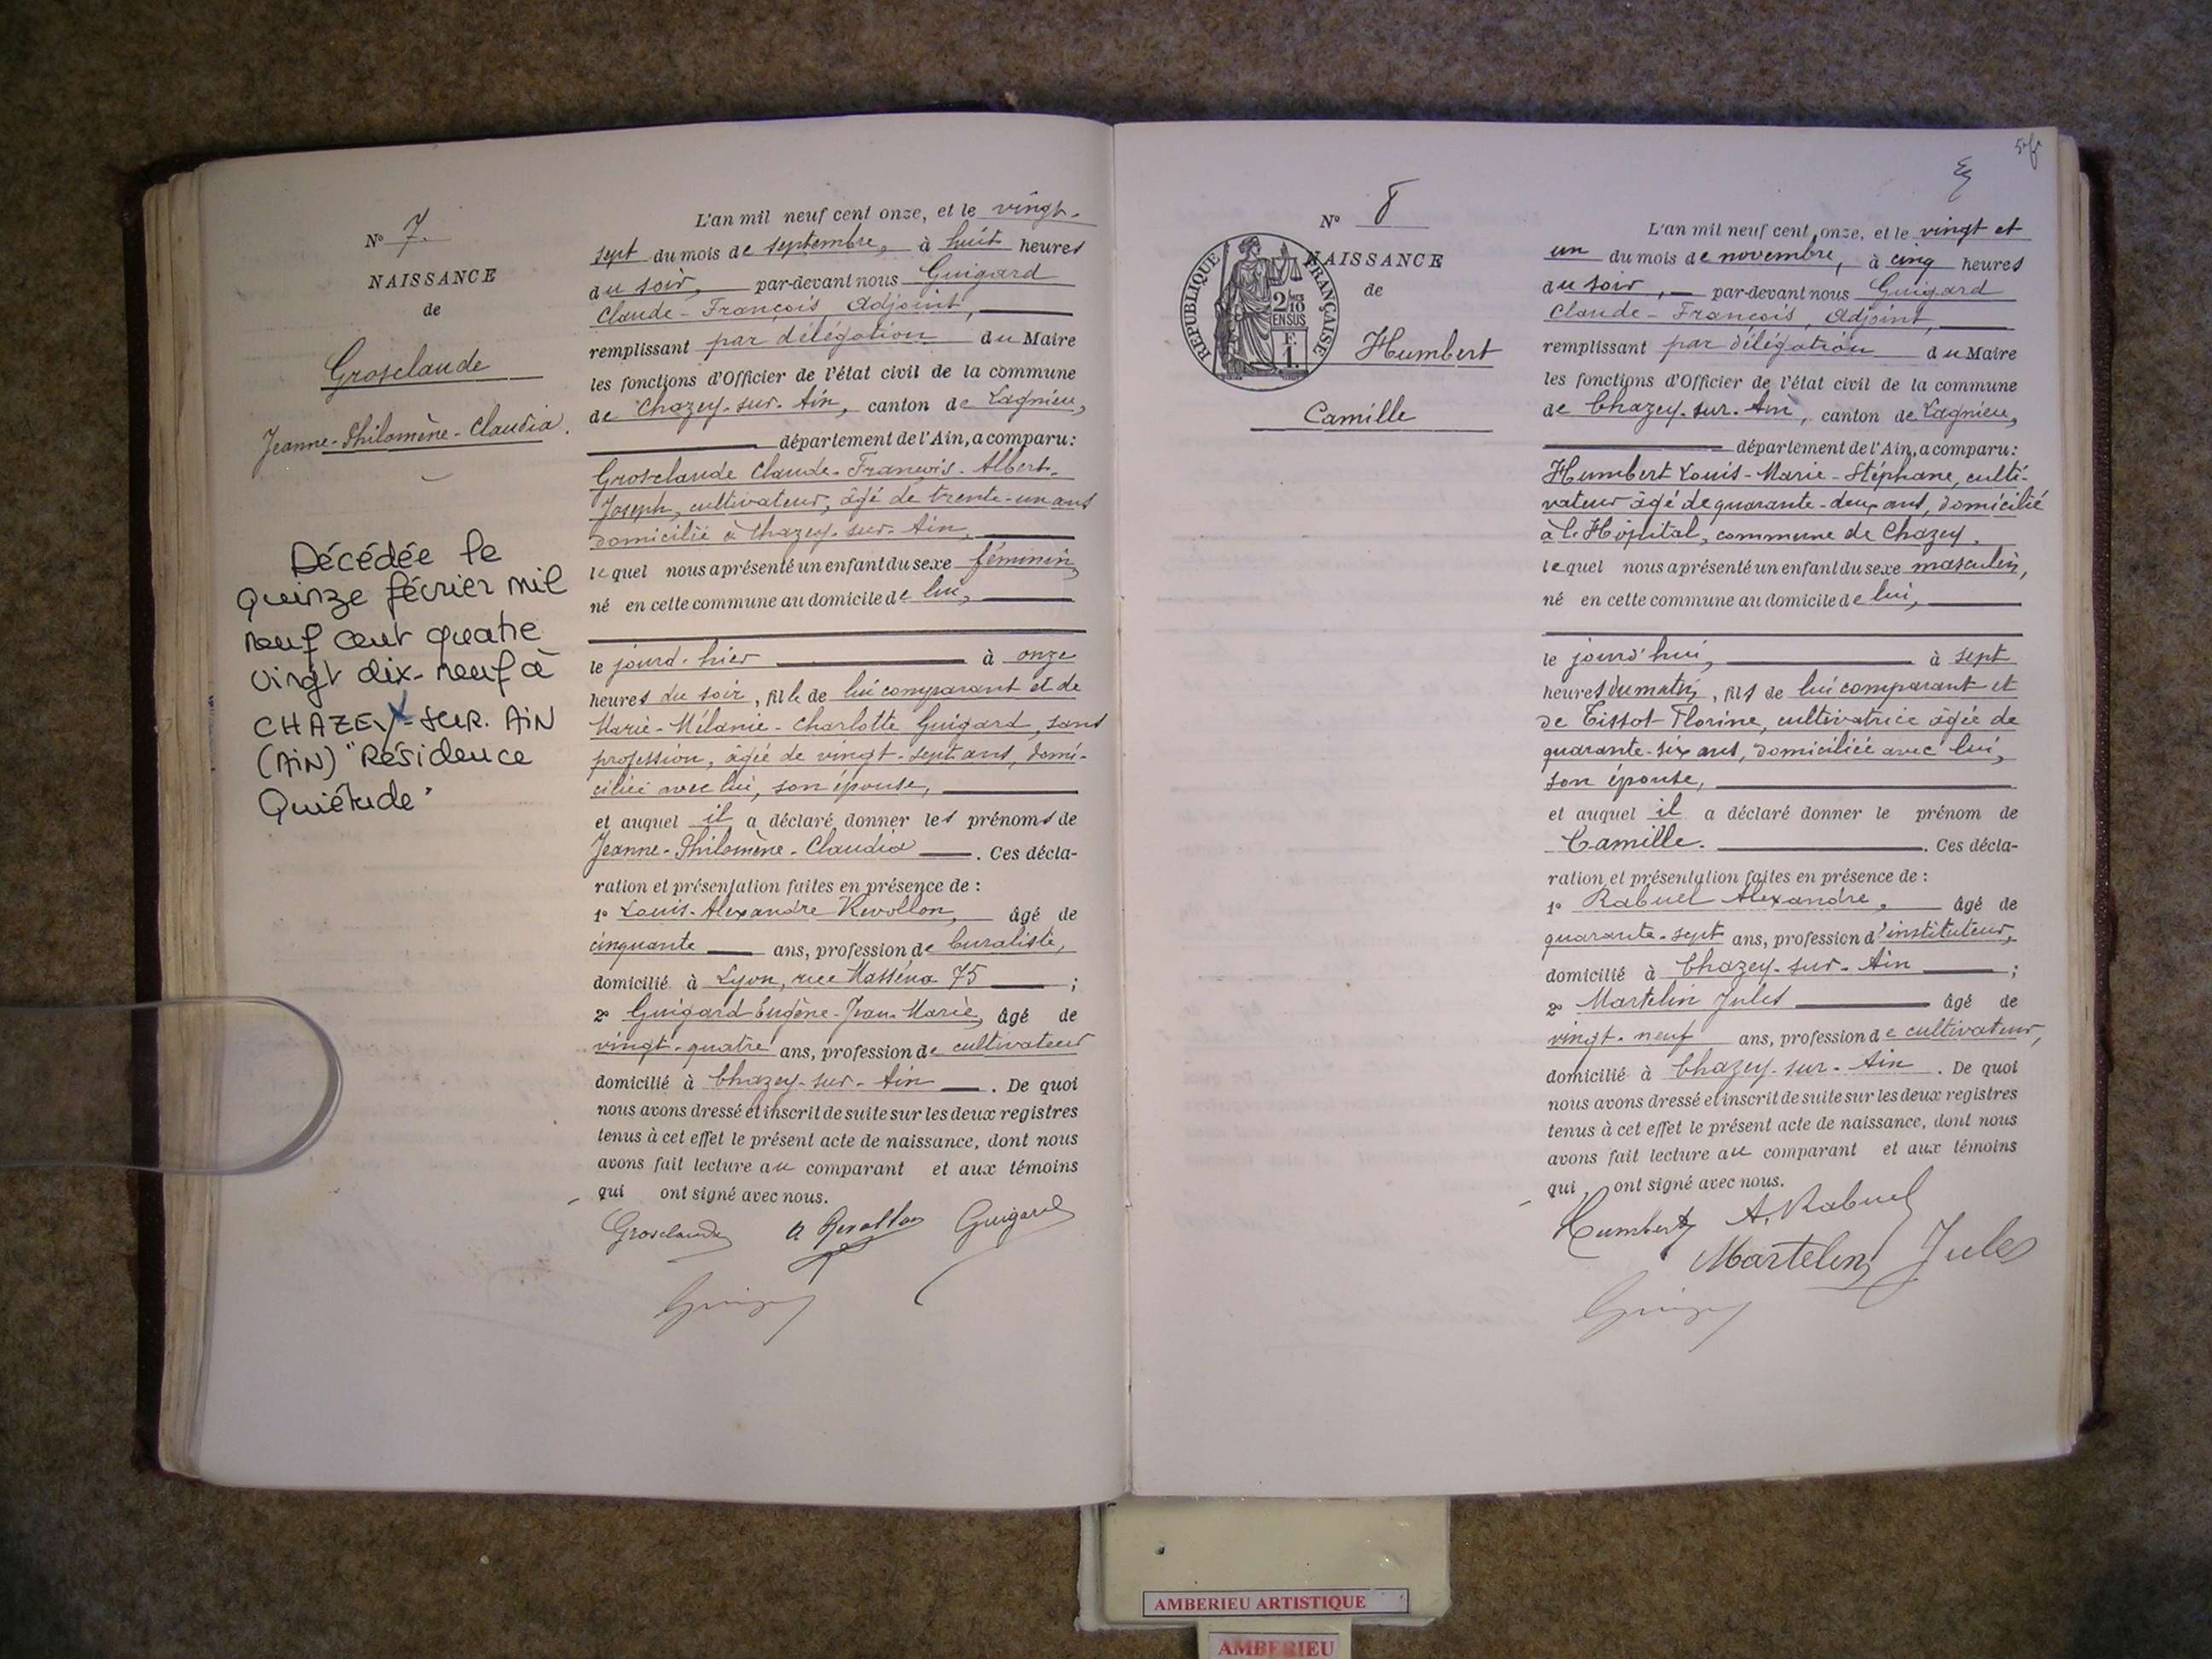 N° 7.
NAISSANCE
de
Grosclaude
Jeanne-Philomène-Claudia.
Décédée le
quinze février mil
neuf cent quatre
vingt dix-neuf à
CHAZEY-SUR-AIN
(AIN) "Résidence
Quiétude"
L'an mil neuf cent onze, et le vingt-
sept du mois de septembre, à huit heures
du soir, par-devant nous Guigard
Claude-François, Adjoint,
remplissant par délégation du Maire
les fonctions d'Officier de l'état civil de la commune
de Chazey-sur-Ain, canton de Lagnieu,
département de l'Ain, a comparu:
Grosclaude Claude-François-Albert-
Joseph, cultivateur, âgé de trente-un ans
domicilié à Chazey-sur-Ain,
lequel nous a présenté un enfant du sexe féminin,
né en cette commune au domicile de lui,
le jourd-hier à onze
heures du soir, fille de lui comparant et de
Marie-Mélanie-Charlotte Guigard, sans
profession, âgée de vingt-sept ans, domi-
ciliée avec lui, son épouse,
et auquel il a déclaré donner les prénoms de
Jeanne-Philomène-Claudia. Ces décla-
ration et présentation faites en présence de :
1° Louis-Alexandre Revollon, âgé de
cinquante ans, profession de buraliste,
domicilié à Lyon, rue Masséna 75 ;
2° Guigard Eugène-Jean-Marie, âgé de
vingt-quatre ans, profession de cultivateur
domicilié à Chazey-sur-Ain. De quoi
nous avons dressé et inscrit de suite sur les deux registres
tenus à cet effet le présent acte de naissance, dont nous
avons fait lecture au comparant et aux témoins
qui ont signé avec nous.
Grosclaude A Revollon Guigard
N° 8
NAISSANCE
de
RÉPUBLIQUE FRANÇAISE
2/10
EN SUS
F.
1.
Humbert
Camille
L'an mil neuf cent onze, et le vingt et
un du mois de novembre, à cinq heures
du soir, par-devant nous Guigard
Claude-François, Adjoint,
remplissant par délégation du Maire
les fonctions d'Officier de l'état civil de la commune
de Chazey-sur-Ain, canton de Lagnieu,
département de l'Ain, a comparu:
Humbert Louis-Marie-Stéphane, culti-
vateur âgé de quarante-deux ans, domicilié
à l'Hôpital, commune de Chazey,
lequel nous a présenté un enfant du sexe masculin,
né en cette commune au domicile de lui,
le jourd'hui, à sept
heures du matin, fils de lui comparant et
de Tissot Florine, cultivatrice âgée de
quarante-six ans, domiciliée avec lui,
son épouse,
et auquel il a déclaré donner le prénom de
Camille. Ces décla-
ration et présentation faites en présence de :
1° Rabuel Alexandre, âgé de
quarante-sept ans, profession d'instituteur,
domicilié à Chazey-sur-Ain ;
2° Martelin Jules âgé de
vingt-neuf ans, profession de cultivateur,
domicilié à Chazey-sur-Ain. De quoi
nous avons dressé et inscrit de suite sur les deux registres
tenus à cet effet le présent acte de naissance, dont nous
avons fait lecture au comparant et aux témoins
qui ont signé avec nous.
Humbert A. Rabuel
Martelin Jules
AMBERIEU ARTISTIQUE
AMBERIEU